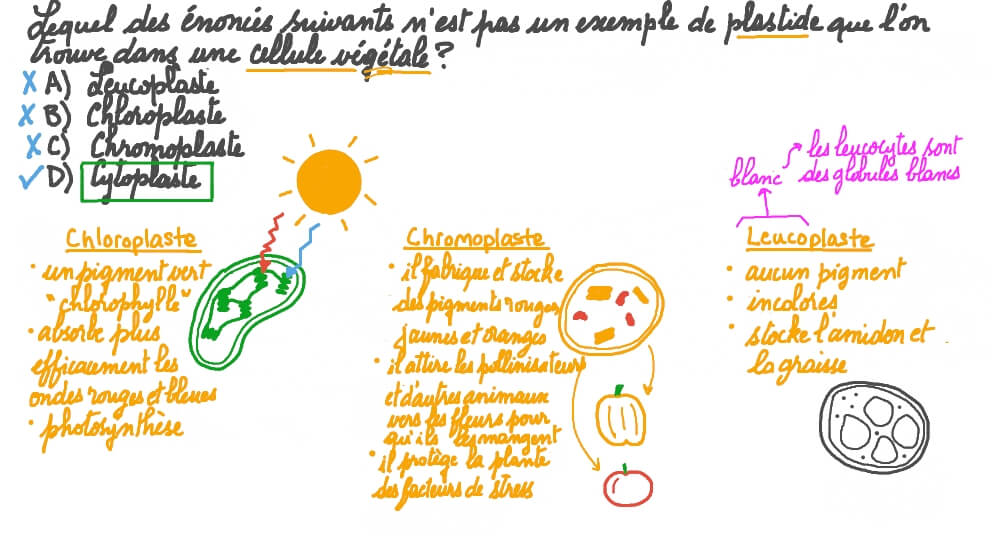 Lequel des énoncés suivants n'est pas un exemple de plastide que l'on
trouve dans une cellule végétale ?
A) Leucoplaste
B) Chloroplaste
C) Chromoplaste
D) Cytoplaste
les leucocytes sont
blanc des globules blancs
Chloroplaste
• un pigment vert
"chlorophylle"
• absorbe plus
efficacement les
ondes rouges et bleues
• photosynthèse
Chromoplaste
• il fabrique et stocke
des pigments rouges,
jaunes et oranges
• il attire les pollinisateurs
et d'autres animaux
vers les fleurs pour
qu'ils les mangent
• il protège la plante
des facteurs de stress
Leucoplaste
• aucun pigment
• incolores
• stocke l'amidon et
la graisse